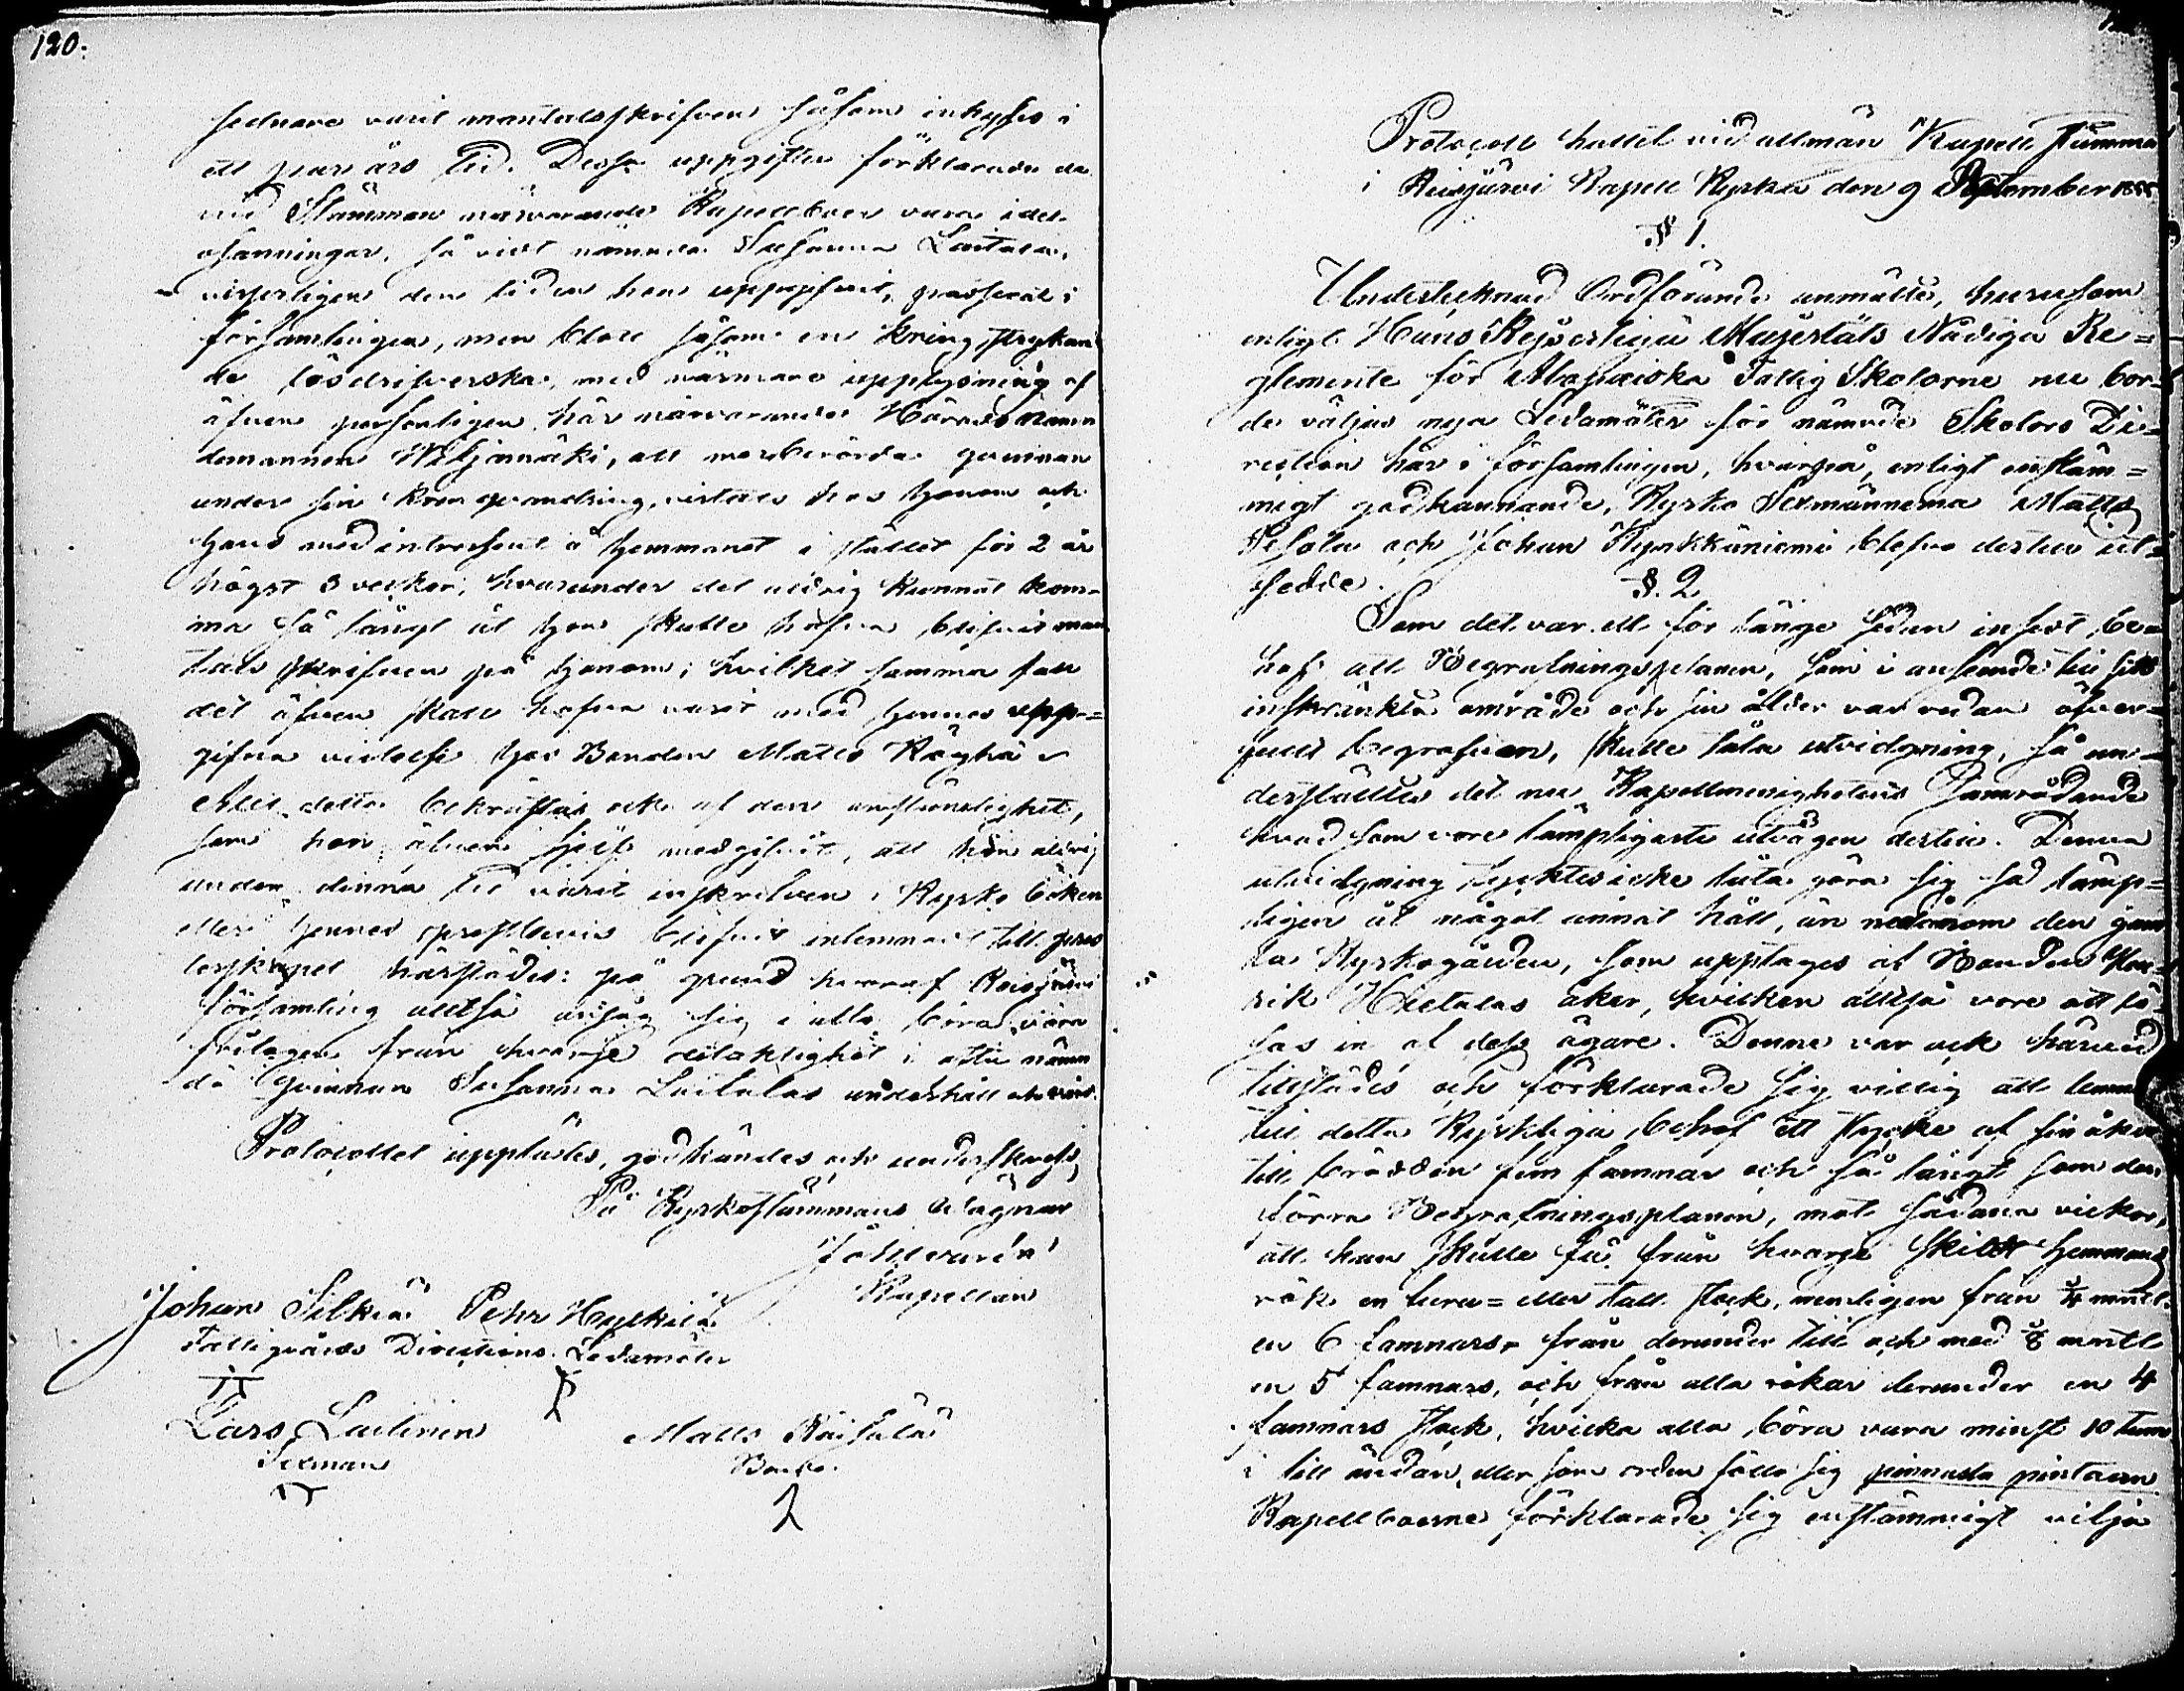 120.
sednare varit mantalsskrifven såsom inhyses i
ett par års tid. Dessa uppgifter förklarade de
vid Stämman närvarande Kapellboer vara idel
osanningar, så vidt nämnde Susanna Laitala,
visserligen den tiden hon uppgifvit, passerat i
församlingen, men blott såsom en kringstrykan
de lösdrifverska, med närmare upplysning af
äfven personligen här närvarande Härads Nämn
demannen Wiljamäki, att merberörda qvinnan
under sin kringvandring, vistats hos honom och
hans medintressent å hemmanet i stället för 2 år
högst 3 veckor, hvarunder det aldrig kunnat kom-
ma så långt at hon skulle hafva blifvit man
tals skrifven på honom; hvilket samma fall
det äfven skall hafva varit med hennes upp-
gifna vistelse hos Bonden Matts Käyhä
Allt detta bekräftas ock af den omständighet,
som hon äfven sjelf medgifvit, att hon aldrig
under denna tid varit inskrifven i Kyrko böken
eller hennes prestbevis blifvit inlemnadt till pres
terskapet härstädes: på grund hvaraf Reisjärvi
församling alltså ansåg sig i allo böra vara
fritagen från hvarje delaktighet i ofta nämn
da qvinnan Susanna Laitalas underhåll och vård.
Protocollet upplästes, godkändes och underskrefs,
På Kyrkostämmans vägnar
Joh
Kapellan
Johan Silkiä Pehr Hyrkilä
Fattigvårds Directions Ledamöter
Lars Laitinen Matts Räisälä
Sexman Bonde
Protocoll hållit vid allmän Kapell Stämma
i Reisjärvi Kapell Kyrka den 9 September 1855
§ 1.
Undertecknad Ordförande anmälde, hurusom
enligt Hans Kejserliga Majestäts Nådiga Re-
glemente för Abcfveiska Fattig Skolorne nu bor-
de väljas nya Ledamöter för nämnde Skolors Di-
rection här i församlingen, hvarpå, enligt enstäm-
migt godkännande, Kyrko Sexmännerna Matts
och Johan Kyrkkäniemi blefvo dertill ut-
sedde.
§. 2
Som det var ett för länge sedan insedt be-
hof att Begrafningsplanen, som i anseende till sitt
inskränkta område och sin ålder var redan öfver-
fullt begrafven, skulle tåla utvidgning, så un-
derställdes det nu Kapellmenighetens Samrådande
hvad som vore lämpligaste utvägen dertill. Denna
utvidgning tycktes icke låta göra sig så lämp-
ligen åt något annat håll, än nedanom den gam
la Kyrkogården, som upptages af Bonden Hen-
rik Hietalas åker, hvilken alltså vore att lö-
sas in af dess ägare. Denne var ock härvid
tillstädes och förklarade sig villig att lemna
till detta Kyrkliga behof ett stycke af sin åker
till bredden fem famnar och så långt som den
förra Begrafningsplanen, mot sådana vilkor,
att han skulle få från hvarje skildt hemmans
rök en furu- eller tall stock, nemligen från 1/4 mantl
en 6 famnars, från derunder till och med 1/8 mantl
en 5 famnars, och från alla rökar derunder en 4
famnars stock, hvilka alla böra vara minst 10 tum
i lill ändan, eller som orden föllo sig pinnasta pintaan
Kapellboerne förklarade sig enstämmigt vilja